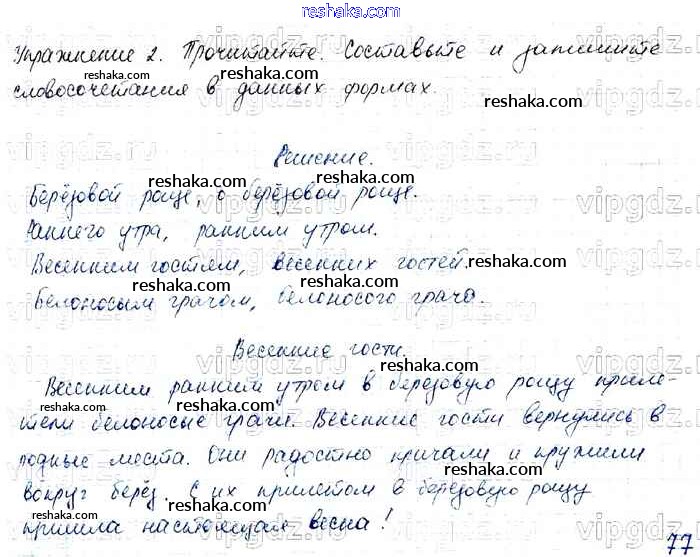 reshaka.com
Упражнение 2. Прочитайте. Составьте и запишите
словосочетания в данных формах.
Решение.
Берёзовой роще, о берёзовой роще.
Раннего утра, ранним утром.
Весенним гостям, весенних гостей.
Белоносым грачом, белоносого грача.
Весенние гости.
Весенним ранним утром в берёзовую рощу приле-
тели белоносые грачи. Весенние гости вернулись в
родные места. Они радостно кричали и кружили
вокруг берёз. С их прилётом в берёзовую рощу
пришла настоящая весна!
77